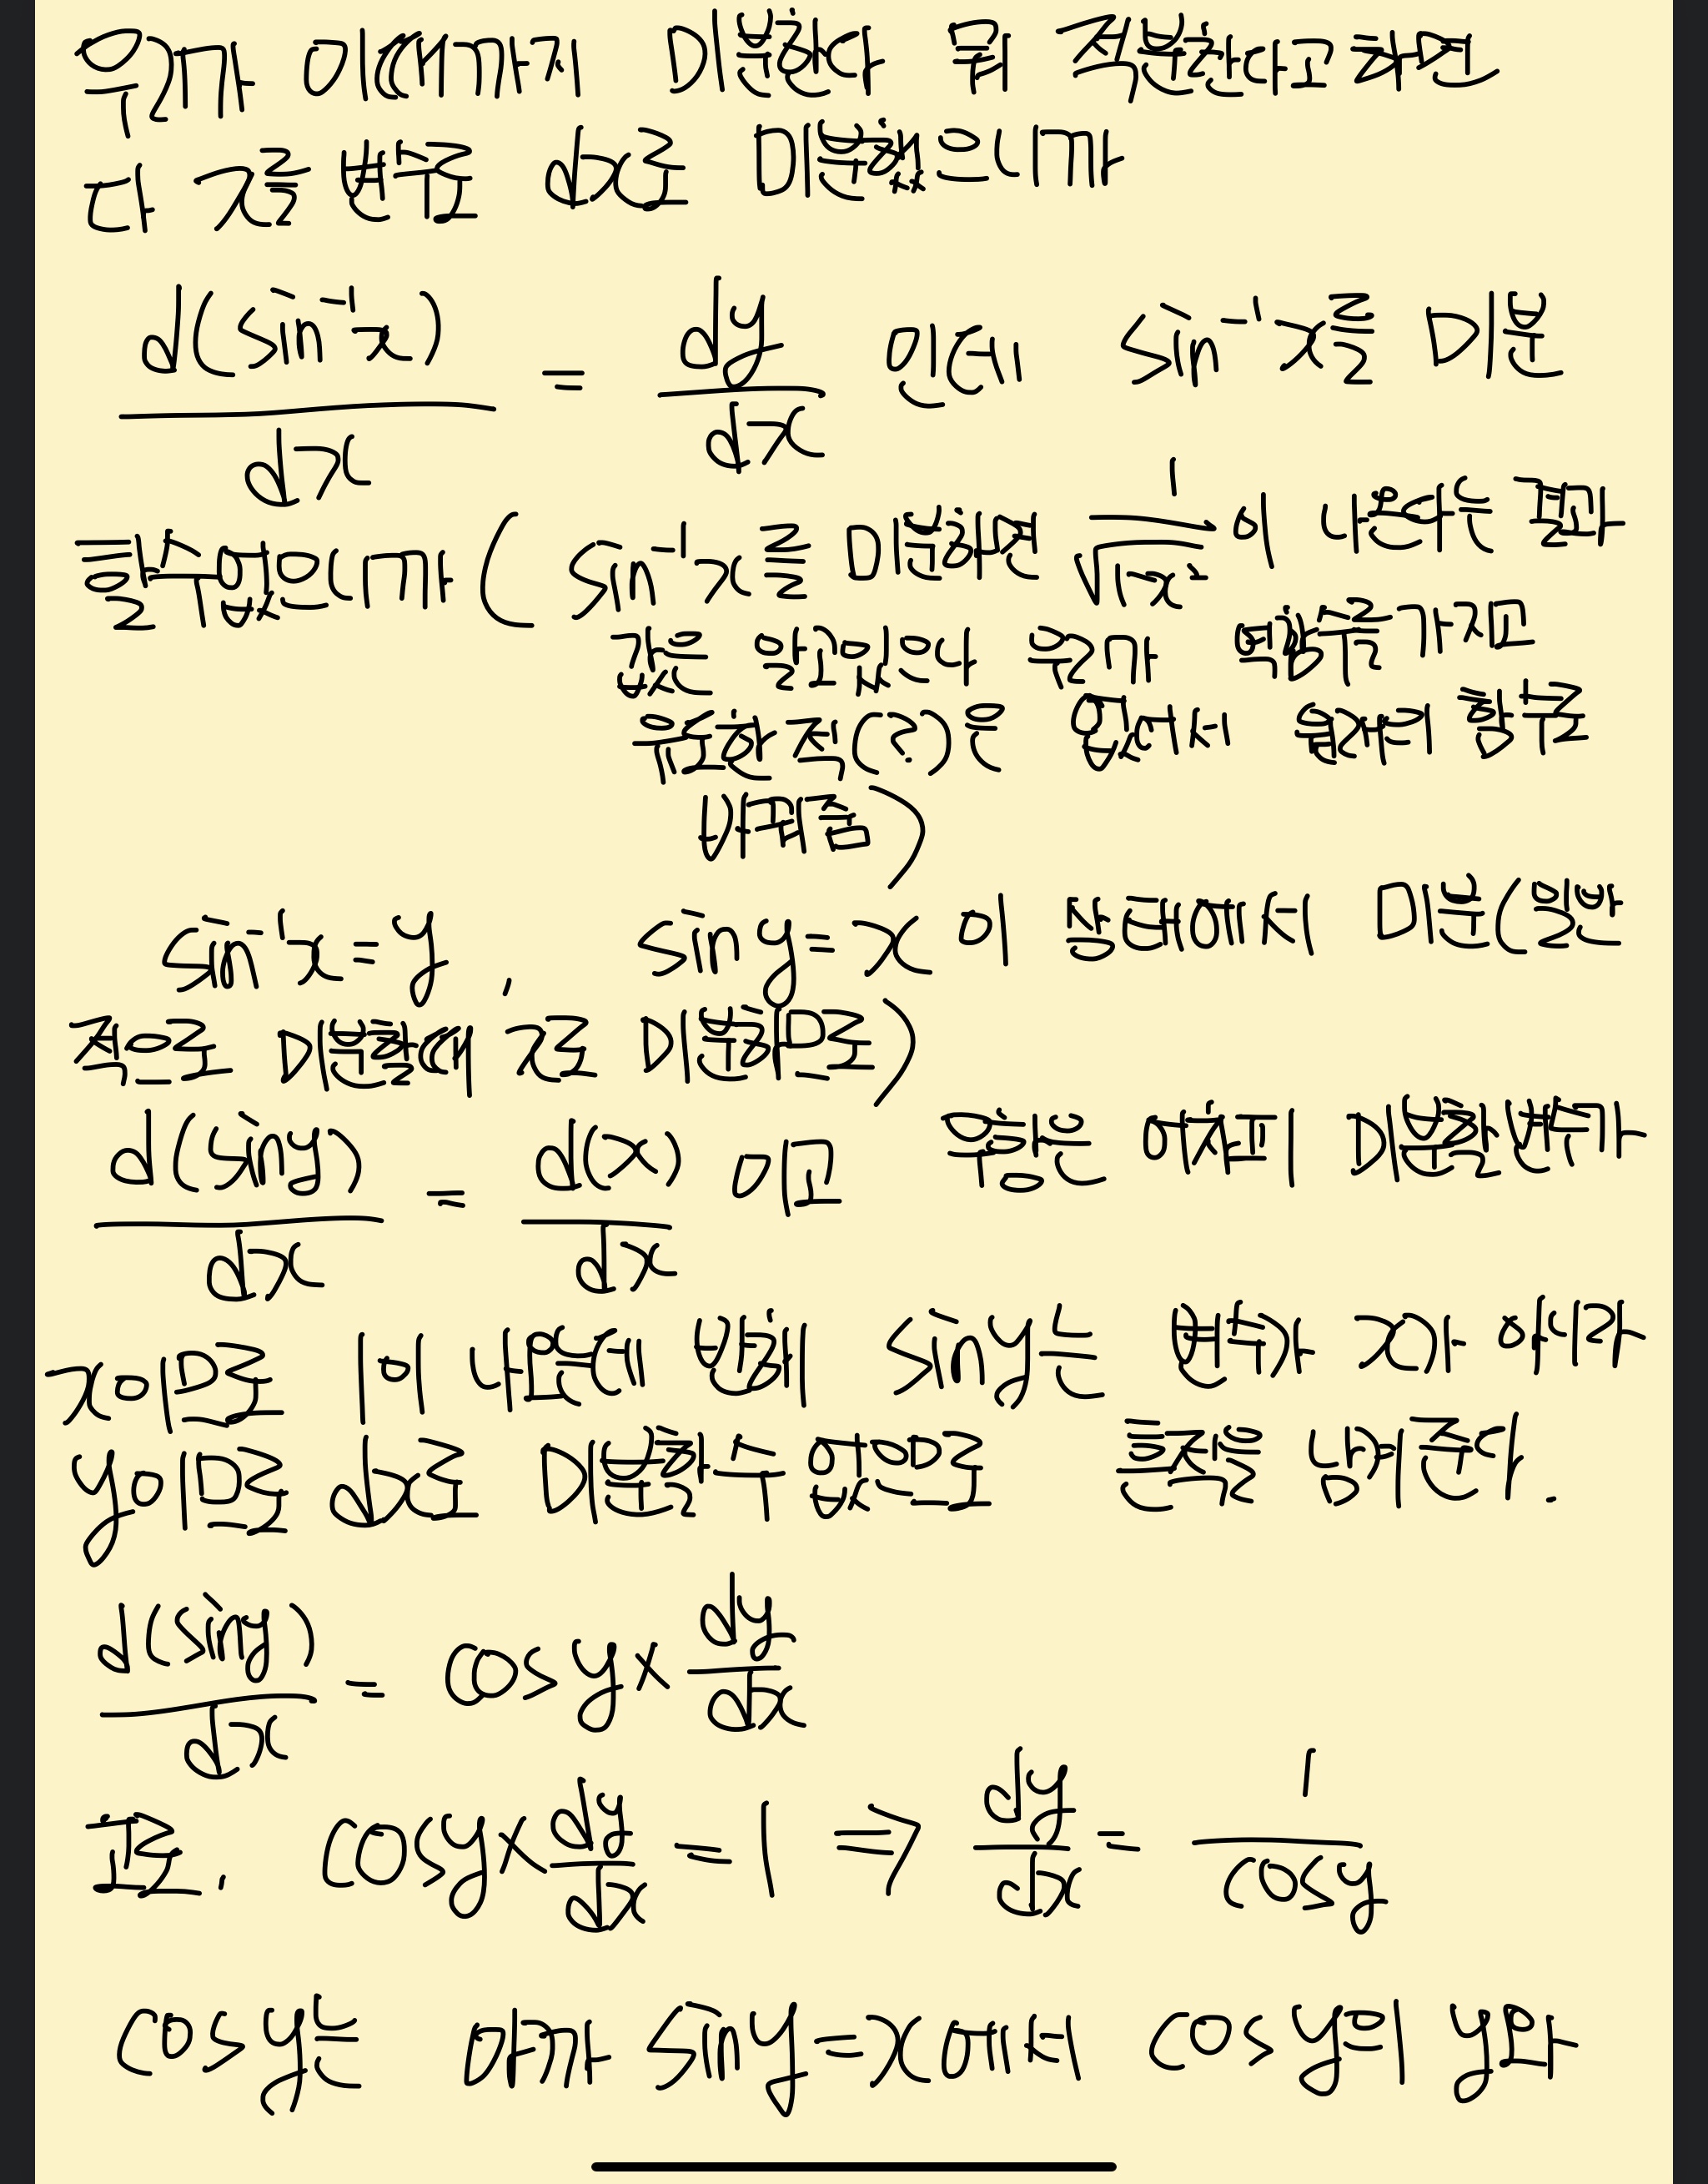 우가 여태까지 미분한 뒤 적분한다고 했
다 x를 변수로 dx로 미분했으니까
d(sin⁻¹x)/dx = dy/dx 인데 sin⁻¹x를 미분
를 할수 없으니까 (sin⁻¹x를 미분하면 1/√(1-x²)이 나와주는 결과
것은 알고 있으나 우리가
(?)은 앞에서 좋구
배제중)
sin⁻¹x = y, siny = x 이 상태에서 미분(일반
적으로 미분할때 x로 미분함으로)
d(siny)/dx = d(x)/dx 이고 우항은 어차피 미분할 변수가
x이므로 1이 나오는데 반해 siny는 변수가 x가 아니라
y이므로 dx로 미분할수 없으므로 를 바꿔준다.
d(siny)/dx = cosy × dy/dx
고로, cosy × dy/dx = 1 ⇒ dy/dx = 1/cosy
cosy는 아까 siny=x에서 cosy의 y와